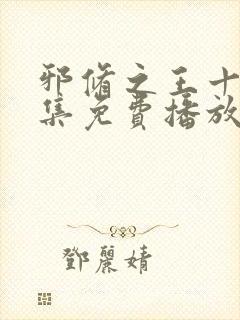 邪脩之王十
集免費播放
鄧麗婧